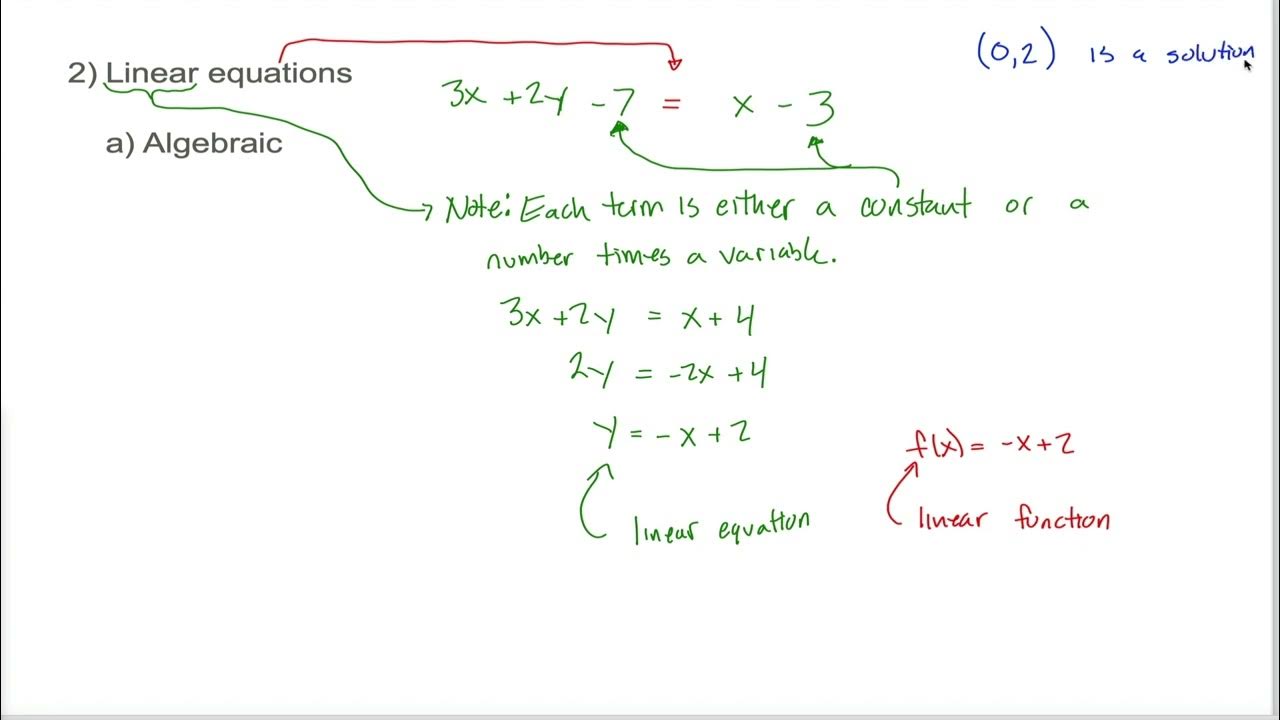 2) Linear equations
a) Algebraic
3x + 2y - 7 = x - 3
(0,2) is a solution
Note: Each term is either a constant or a
number times a variable.
3x + 2y = x + 4
2y = -2x + 4
y = -x + 2
linear equation
f(x) = -x + 2
linear function